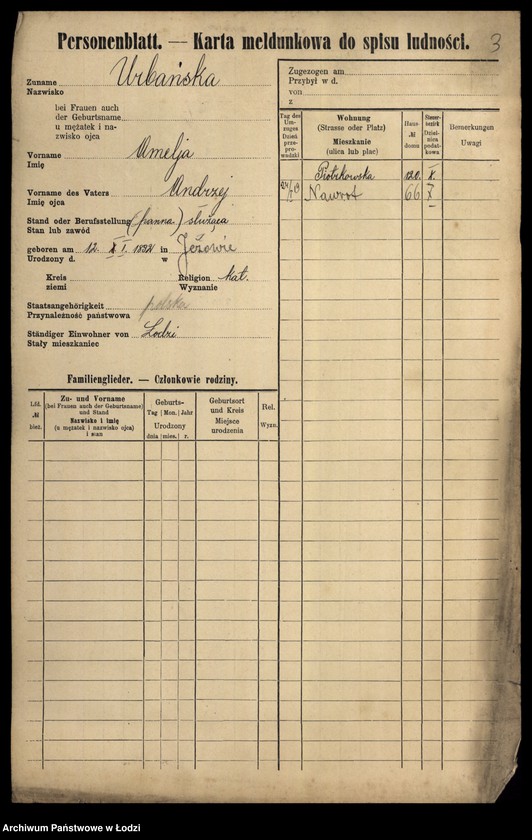 Personenblatt. — Karta meldunkowa do spisu ludności.
3
Zuname Urbańska
Nazwisko
bei Frauen auch
der Geburtsname
u mężatek i na-
zwisko ojca
Vorname Amelja
Imię
Vorname des Vaters Andrzej
Imię ojca
Stand oder Berufsstellung (panna) służąca
Stan lub zawód
geboren am 12. I. in Jeżowie
Urodzony d. w
Kreis
ziemi
Religion kat.
Wyznanie
Staatsangehörigkeit polska
Przynależność państwowa
Ständiger Einwohner von Łodzi
Stały mieszkaniec
Familienglieder. — Członkowie rodziny.
Lfd. № bież.
Zu- und Vorname
(bei Frauen auch der Geburtsname)
und Stand
Nazwisko i imię
(u mężatek i nazwisko ojca)
i stan
Geburts-
Tag Mon. Jahr
Urodzony
dnia mies. r.
Geburtsort
und Kreis
Miejsce
urodzenia
Rel.
Wyzn.
Zugezogen am
Przybył w d.
von
z
Tag des
Um-
zuges
Dzień
prze-
prowadzki
Wohnung
(Strasse oder Platz)
Mieszkanie
(ulica lub plac)
Haus
№
domu
Steuer-
bezirk
Dziel-
nica
podat-
kowa
Bemerkungen
Uwagi
Piotrkowska 120. X.
Nawrot 66 7
Archiwum Państwowe w Łodzi